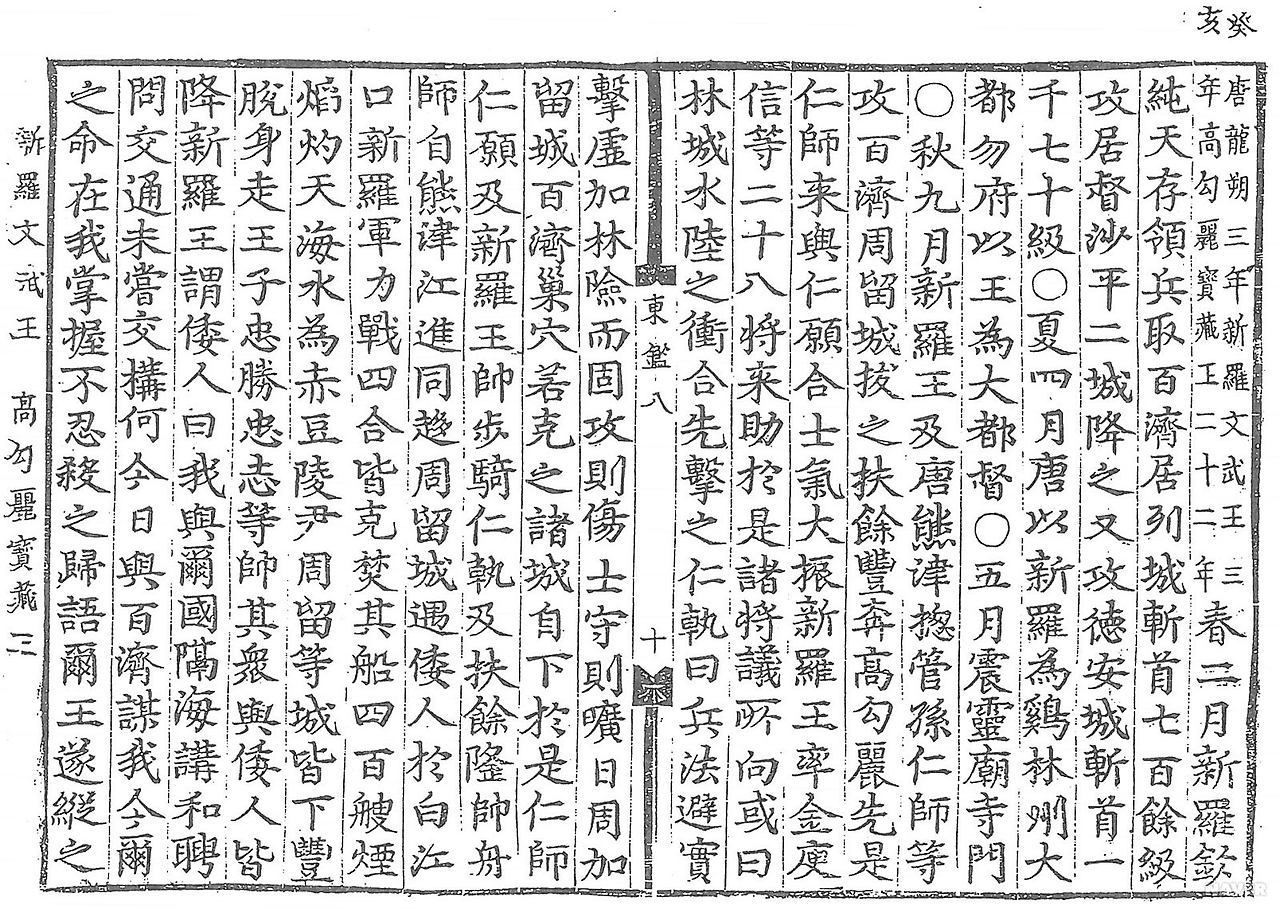 癸亥
唐龍朔三年新羅文武王三年高勾麗寶藏王二十二年春二月新羅欽
純天存領兵取百濟居列城斬首七百餘級
攻居督沙平二城降之又攻德安城斬首一
千七十級○夏四月唐以新羅為鷄林州大
都勿府以王為大都督○五月震靈廟寺門
○秋九月新羅王及唐熊津摠管孫仁師等
攻百濟周留城拔之扶餘豐奔高勾麗先是
仁師來與仁願合士氣大振新羅王率金庾
信等二十八將來助於是諸將議所向或曰
林城水陸之衝合先擊之仁執曰兵法避實
東鑑八
十
擊虛加林險而固攻則傷士守則曠日周加
留城百濟巢穴若克之諸城自下於是仁師
仁願及新羅王帥步騎仁執及扶餘隆帥舟
師自熊津江進同趍周留城遇倭人於白江
口新羅軍力戰四合皆克焚其船四百艘煙
焰灼天海水為赤豆陵尹周留等城皆下豐
脫身走王子忠勝忠志等帥其衆與倭人皆
降新羅王謂倭人曰我與爾國隔海講和聘
問交通未嘗交搆何今日與百濟謀我今爾
之命在我掌握不忍殺之歸語爾王遂縱之
新羅文武王 高勾麗寶藏三
NAVER